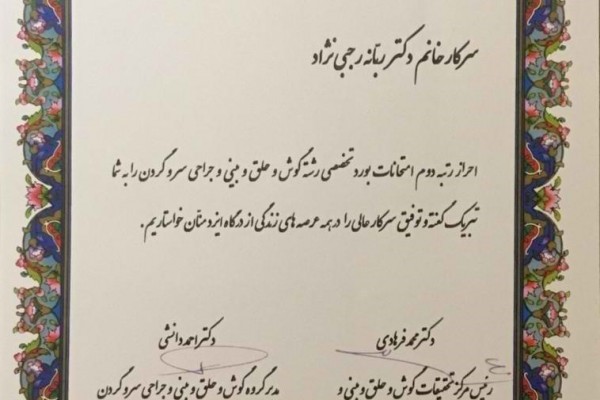 سرکار خانم دکتر ربّانه رجبی نژاد
احراز رتبه دوم امتحانات بورد تخصصی رشته گوش و حلق و بینی و جراحی سر و گردن را به شما
تبریک گفته و توفیق سرکار عالی را در همه عرصه های زندگی از درگاه ایزد منان خواستاریم.
دکتر محمد فرهادی
دکتر احمد دانشی
رئیس مرکز تحقیقات گوش و حلق و بینی و
مدیر گروه گوش و حلق و بینی و جراحی سر و گردن